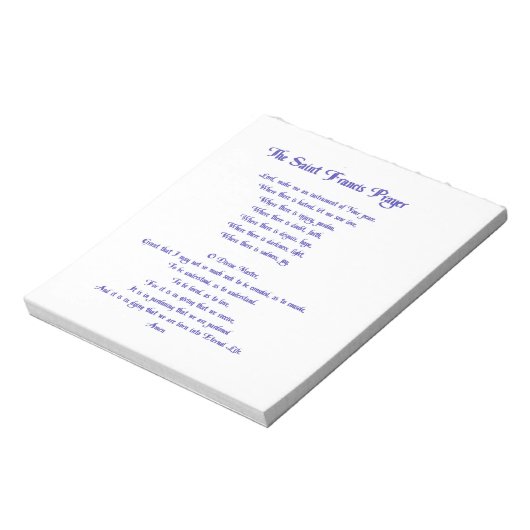 The Saint Francis Prayer
Lord, make me an instrument of Your peace.
Where there is hatred, let me sow love;
Where there is injury, pardon;
Where there is doubt, faith;
Where there is despair, hope;
Where there is darkness, light;
Where there is sadness, joy.
O Divine Master,
Grant that I may not so much seek to be consoled, as to console;
To be understood, as to understand;
To be loved, as to love;
For it is in giving that we receive;
It is in pardoning that we are pardoned
And it is in dying that we are born into Eternal Life.
Amen